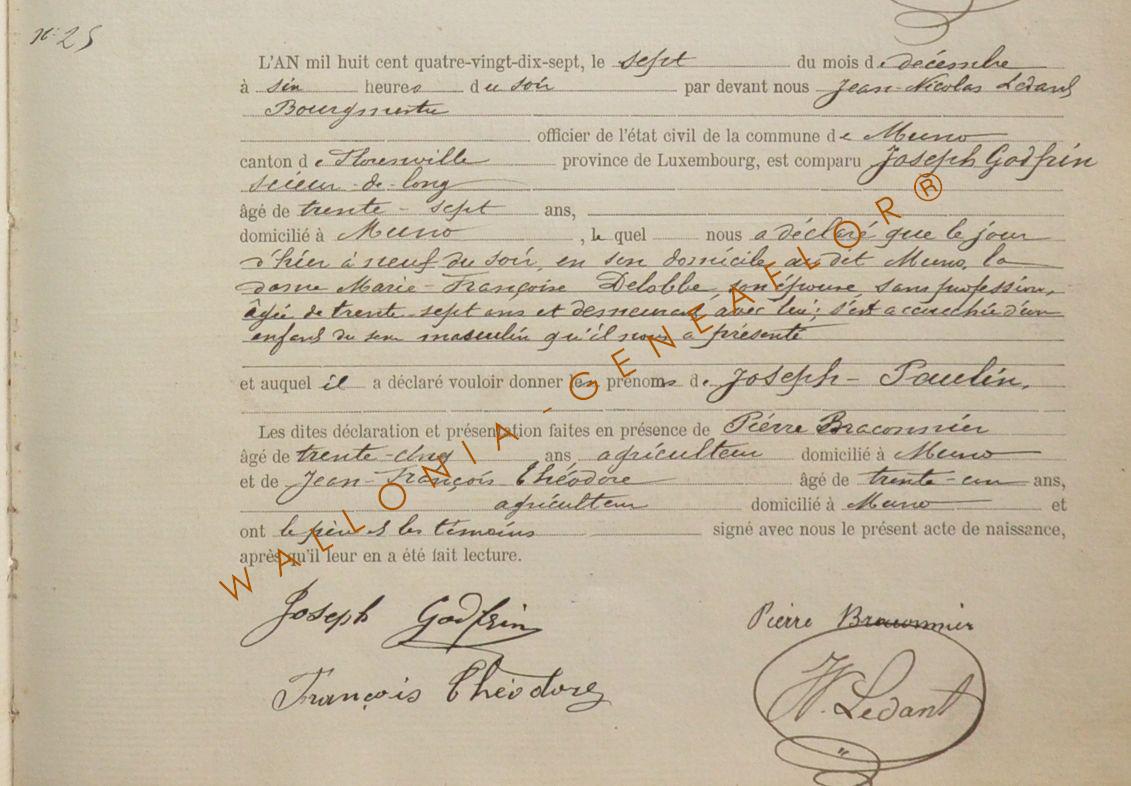 Nº 25
L'AN mil huit cent quatre-vingt-dix-sept, le sept du mois de décembre
à six heures du soir par devant nous Jean-Nicolas Ledant
Bourgmestre
officier de l'état civil de la commune de Muno
canton de Florenville province de Luxembourg, est comparu Joseph Godfrin
scieur-de-long
âgé de trente-sept ans,
domicilié à Muno, lequel nous a déclaré que le jour
d'hier à neuf du soir, en son domicile au dit Muno, la
dame Marie-Françoise Delobbe son épouse, sans profession,
âgée de trente-sept ans et demeurant avec lui; s'est accouchée d'un
enfant du sexe masculin qu'il nous a présenté
et auquel il a déclaré vouloir donner les prénoms de Joseph-Paulin.
Les dites déclaration et présentation faites en présence de Pierre Braconnier
âgé de trente-cinq ans agriculteur domicilié à Muno
et de Jean-François Théodore âgé de trente-un ans,
agriculteur domicilié à Muno et
ont le père et les témoins signé avec nous le présent acte de naissance,
après qu'il leur en a été fait lecture.
Joseph Godfrin
Pierre Braconnier
François Théodore
N. Ledant
WALLONIA-GENEAFLOR®